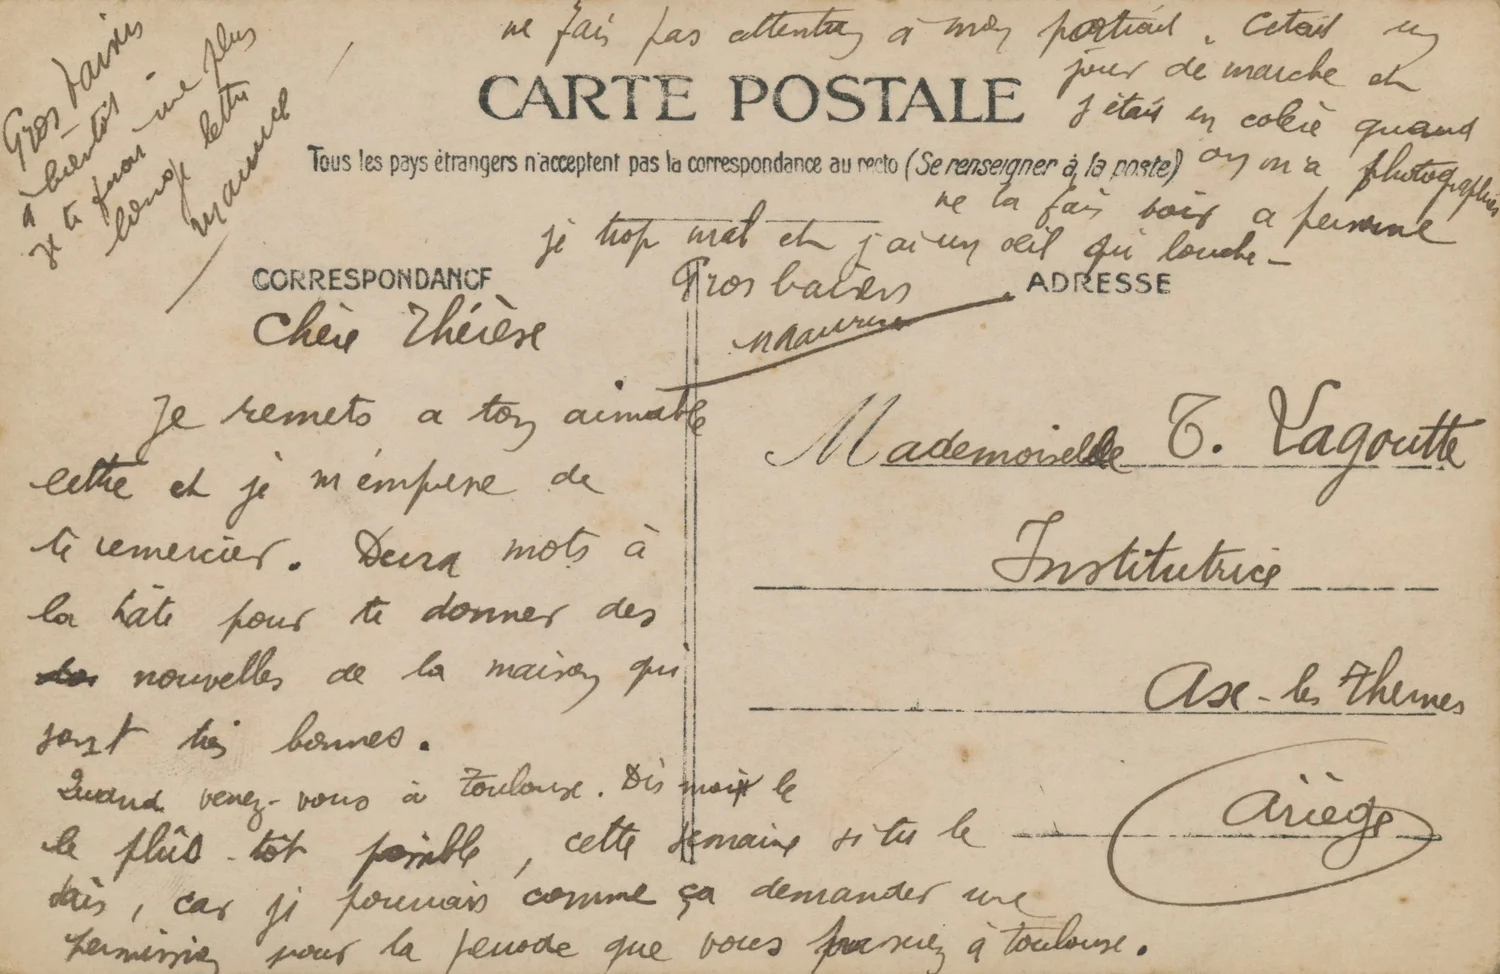 ne fais pas attention à mon portrait. C'etait un
jour de marche et
j'étais en colère quand
on m'a photographié
ne la fais voir a personne
je trop mal et j'ai un œil qui louche –
Gros baisers
Maurice
Gros baisers
à bientôt
je te ferai une plus
longue lettre
Maurice
CARTE POSTALE
Tous les pays étrangers n'acceptent pas la correspondance au recto (Se renseigner à la poste)
CORRESPONDANCE
ADRESSE
Chère Thérèse
Je remets a ton aimable
lettre et je m'empresse de
te remercier. Deux mots à
la hâte pour te donner des
nouvelles de la maison qui
sont très bonnes.
Quand venez-vous à Toulouse. Dis moi le
le plûs tôt possible, cette semaine si tu le
sais, car je pourrais comme ça demander une
permission pour la periode que vous à Toulouse.
Mademoiselle T. Lagoutte
Institutrice
Ax-les Thermes
Ariège